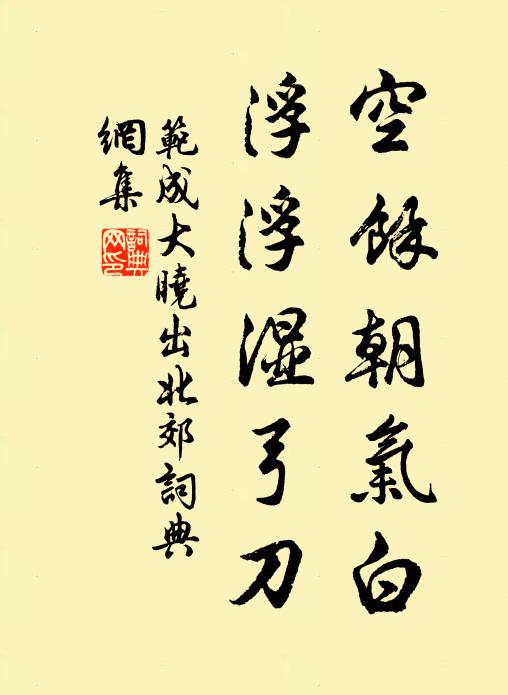 空餘朝氣白
浮浮濕弓刀
範成大曉出北郊詞典
網集
詞典
网印